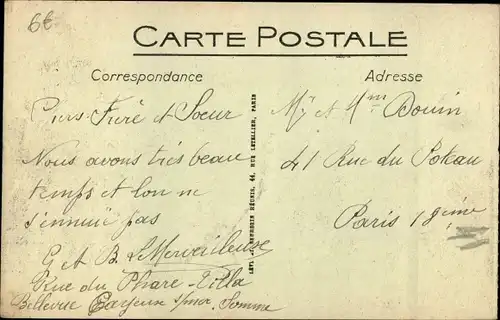 6€
CARTE POSTALE
Correspondance
Adresse
Frère et Soeur
Nous avons très beau
temps et l'on ne
s'ennuie pas
G et B Lemerveilleuse
Rue du Phare - Villa
Bellevue Cayeux s/mer Somme
RÉUNIS, 44, RUE LETELLIER, PARIS
Mr et Mme Douin
41 Rue du Poteau
Paris 18ème